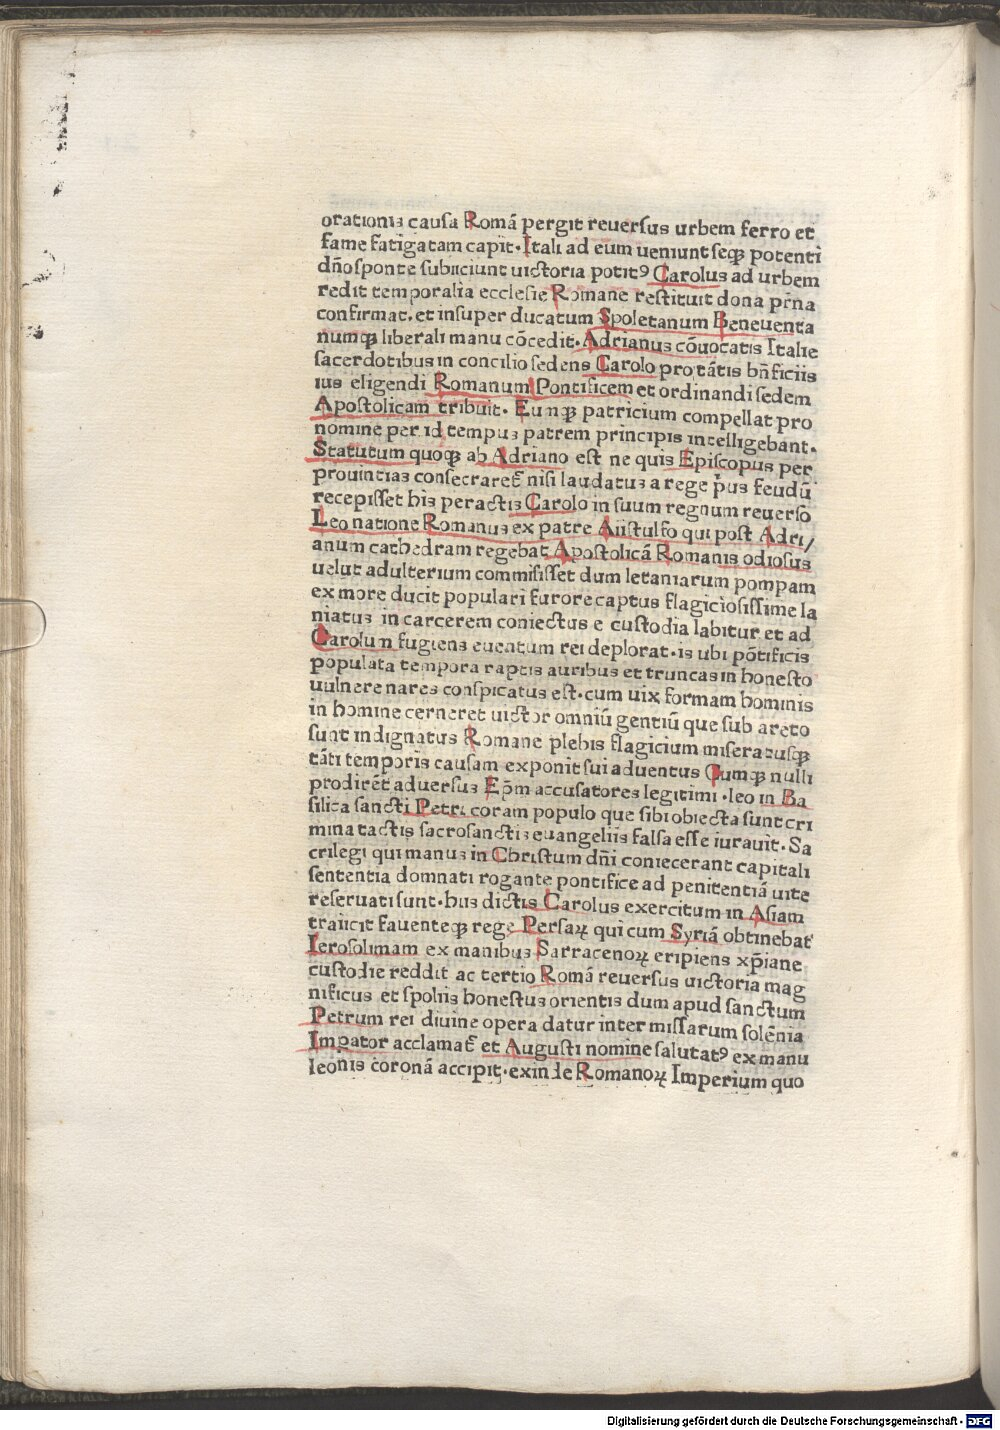 orationis causa Romā pergit reuersus urbem ferro et
fame fatigatam capit. Itali ad eum ueniunt seqꝫ potenti
dño sponte subiiciunt uictoria potitꝰ Carolus ad urbem
redit temporalia ecclesie Romane restituit dona prña
confirmat. et insuper ducatum Spoletanum Beneuenta
numqꝫ liberali manu cōcedit. Adrianus cōuocatis Italie
sacerdotibus in concilio sedens Carolo pro tātis bñficiis
ius eligendi Romanum Pontificem et ordinandi sedem
Apostolicam tribuit. Eunqꝫ patricium compellat pro
nomine per id tempus patrem principis intelligebant.
Statutum quoqꝫ ab Adriano est ne quis Episcopus per
prouintias consecraret̄ nisi laudatus a rege p̄us feudū
recepisset his peractis Carolo in suum regnum reuerso
Leo natione Romanus ex patre Aiistulfo qui post Adri/
anum cathedram regebat Apostolicā Romanis odiosus
uelut adulterium commisisset dum letaniarum pompam
ex more ducit populari furore captus flagiciosissime la
niatus in carcerem coniectus e custodia labitur et ad
Carolum fugiens euentum rei deplorat. is ubi pōtificis
populata tempora raptis auribus et truncas in honesto
uulnere nares conspicatus est. cum uix formam hominis
in homine cerneret uictor omniū gentiū que sub areto
sunt indignatus Romane plebis flagicium miseratusqꝫ
tāti temporis causam exponit sui aduentus Cumqꝫ nulli
prodirēt aduersus Ep̄m accusatores legitimi . leo in Ba
silica sancti Petri coram populo que sibi obiecta sunt cri
mina tactis sacrosanctis euangeliis falsa esse iurauit. Sa
crilegi qui manus in Christum dñi coniecerant capitali
sententia domnati rogante pontifice ad penitentiā uite
reseruati sunt. hiis dictis Carolus exercitum in Asiam
traiicit fauenteqꝫ rege Persaꝝ qui cum Syriā obtinebat
Ierosolimam ex manibus Sarracenoꝝ eripiens xp̄iane
custodie reddit ac tertio Romā reuersus uictoria mag
nificus et spoliis honestus orientis dum apud sanctum
Petrum rei diuine opera datur inter missarum solēnia
Imꝑator acclamat̄ et Augusti nomine salutatꝰ ex manu
leonis coronā accipit. exinde Romanoꝝ Imperium quo
Digitalisierung gefördert durch die Deutsche Forschungsgemeinschaft - DFG